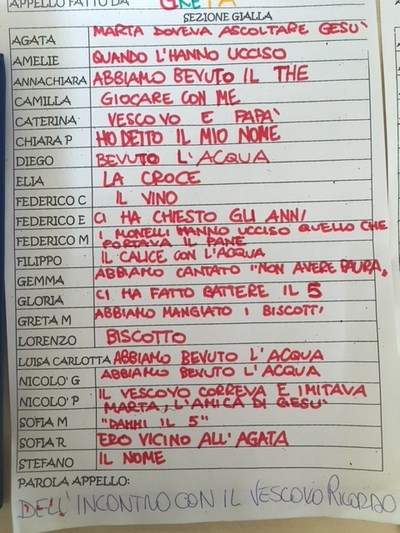 APPELLO FATTO DA GRETA
SEZIONE GIALLA
AGATA MARTA DOVEVA ASCOLTARE GESU'
AMELIE QUANDO L'HANNO UCCISO
ANNACHIARA ABBIAMO BEVUTO IL THE
CAMILLA GIOCARE CON ME
CATERINA VESCOVO E PAPA'
CHIARA P HO DETTO IL MIO NOME
DIEGO BEVUTO L'ACQUA
ELIA LA CROCE
FEDERICO C IL VINO
FEDERICO E CI HA CHIESTO GLI ANNI
FEDERICO M I MONELLI HANNO UCCISO QUELLO CHE
PORTAVA IL PANE
FILIPPO IL CALICE CON L'ACQUA
GEMMA ABBIAMO CANTATO "NON AVERE PAURA"
GLORIA CI HA FATTO BATTERE IL 5
GRETA M ABBIAMO MANGIATO I BISCOTTI
LORENZO BISCOTTO
LUISA CARLOTTA ABBIAMO BEVUTO L'ACQUA
NICOLO' G ABBIAMO BEVUTO L'ACQUA
NICOLO' P IL VESCOVO CORREVA E IMITAVA
MARTA, L'AMICA DI GESU'
SOFIA M "DAMMI IL 5"
SOFIA R ERO VICINO ALL'AGATA
STEFANO IL NOME
PAROLA APPELLO:
DELL'INCONTRO CON IL VESCOVO RICORDO